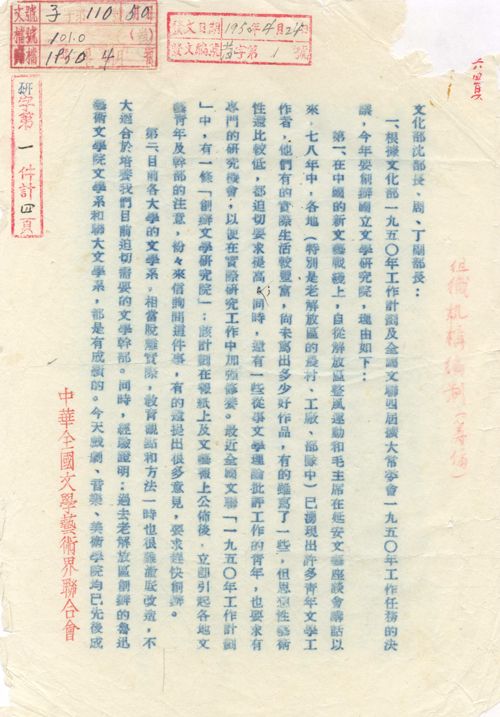 發文日期 1950年4月24
發文編號 字第 1 號
研字第一件計四頁
文化部沈部長、周、丁副部長:
一、根據文化部一九五〇年工作計劃及全國文聯四屆擴大常委會一九五〇年工作任務的決
議,今年要創辦國立文學研究院,理由如下:
第一、在中國的新文藝戰綫上,自從解放區整風運動和毛主席在延安文藝座談會講話以
來,七八年中,各地(特別是老解放區的農村、工廠、部隊中)已湧現出許多青年文學工
作者,他們有的實際生活較豐富,尚未寫出多少好作品,有的雖寫了一些,但思想性藝術
性還比較低,都迫切要求提高。同時,還有一些從事文學理論批評工作的青年,也要求有
專門的研究機會,以便在實際研究工作中加強修養。最近全國文聯「一九五〇年工作計劃
」中,有一條「創辦文學研究院」;該計劃在報紙上及文藝報上公佈後,立即引起各地文
藝青年及幹部的注意,紛々來信詢問這件事,有的還提出很多意見,要求趕快創辦。
第二、目前各大學的文學系,相當脫離實際,教育觀點和方法一時也很難澈底改造,不
大適合於培養我們目前迫切需要的文學幹部。同時,經驗證明:過去老解放區創辦的魯迅
藝術文學院文學系和聯大文學系,都是有成績的。今天戲劇、音樂、美術學院均已先後成
中華全國文學藝術界聯合會
組織機構編制(籌備)